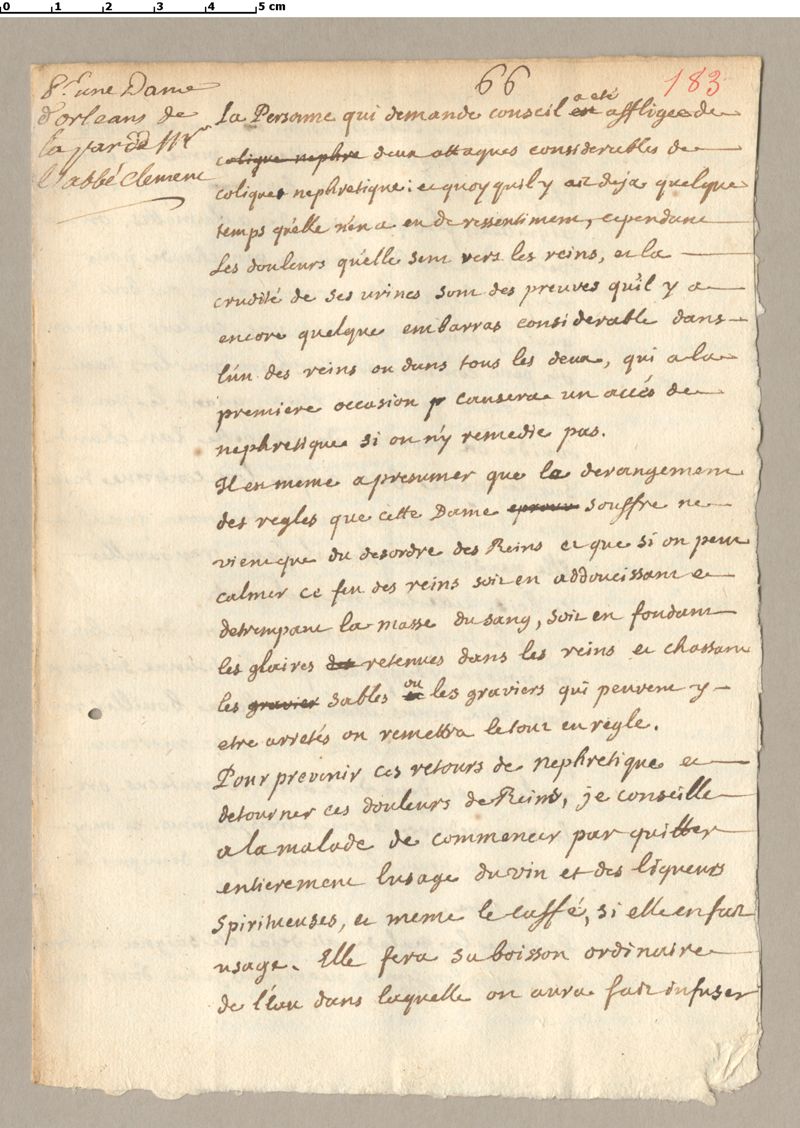 0 1 2 3 4 5 cm
66
183
Pr une Dame
d'orleans de
la par de Mr
L'abbé Clement
La Persone qui demande conseil est a eté affligée de
colique nephre deux attaques considerables de
colique nephretique: et quoy quil y ait deja quelque
temps qu'elle n'en a eu de ressentiment, cependant
Les douleurs qu'elle sent vers les reins, et la
crudité de ses urines sont des preuves qu'il y a
encore quelque embarras considerable dans
lun des reins ou dans tous les deux, qui a la
premiere occasion causera un accés de
nephretique si on n'y remedie pas.
Il est meme a presumer que le derangement
des regles que cette Dame eprouv souffre ne
vient que du desordre des Reins et que si on peut
calmer ce feu des reins soit en addoucissant et
detrempant la masse du sang, soit en fondant
les glaires des retenues dans les reins et chassant
les gravier sables et ou les graviers qui peuvent y
etre arretés on remettra le tout en regle.
Pour prevenir ces retours de nephretique et
detourner ces douleurs de Reins, je conseille
a la malade de commencer par quitter
entierement lusage du vin et des liqueurs
spiritueuses, et meme le caffé, si elle en fait
usage. Elle fera sa boisson ordinaire
de l'eau dans laquelle on aura fait infuser